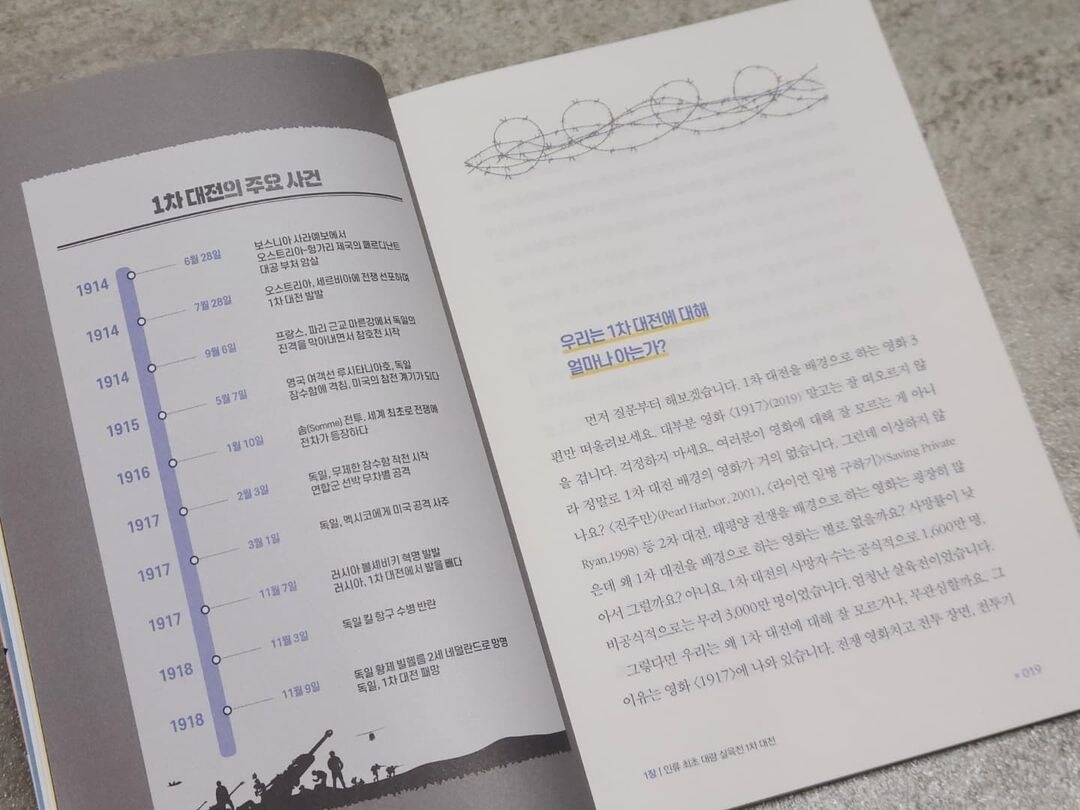 1차 대전의 주요 사건
1914
6월 28일
보스니아 사라예보에서
오스트리아-헝가리 제국의 페르디난트
대공 부처 암살
1914
7월 28일
오스트리아, 세르비아에 전쟁 선포하며
1차 대전 발발
1914
9월 6일
프랑스, 파리 근교 마른강에서 독일의
진격을 막아내면서 참호전 시작
1915
5월 7일
영국 여객선 루시타니아호, 독일
잠수함에 격침, 미국의 참전 계기가 되다
1916
1월 10일
솜(Somme) 전투, 세계 최초로 전쟁에
전차가 등장하다
1917
2월 3일
독일, 무제한 잠수함 작전 시작
연합군 선박 무차별 공격
1917
3월 1일
독일, 멕시코에게 미국 공격 사주
1917
11월 7일
러시아 볼셰비키 혁명 발발
러시아, 1차 대전에서 발을 빼다
1918
11월 3일
독일 킬 항구 수병 반란
1918
11월 9일
독일 황제 빌헬름 2세 네덜란드로 망명
독일, 1차 대전 패망
우리는 1차 대전에 대해
얼마나 아는가?
먼저 질문부터 해보겠습니다. 1차 대전을 배경으로 하는 영화 3
편만 떠올려보세요. 대부분 영화 〈1917〉(2019) 말고는 잘 떠오르지 않
을 겁니다. 걱정하지 마세요. 여러분이 영화에 대해 잘 모르는 게 아니
라 정말로 1차 대전 배경의 영화가 거의 없습니다. 그런데 이상하지 않
나요? 〈진주만〉(Pearl Harbor, 2001), 〈라이언 일병 구하기〉(Saving Private
Ryan,1998) 등 2차 대전, 태평양 전쟁을 배경으로 하는 영화는 굉장히 많
은데 왜 1차 대전을 배경으로 하는 영화는 별로 없을까요? 사망률이 낮
아서 그럴까요? 아니요. 1차 대전의 사망자 수는 공식적으로 1,600만 명,
비공식적으로는 무려 3,000만 명이었습니다. 엄청난 살육전이었습니다.
그렇다면 우리는 왜 1차 대전에 대해 잘 모르거나, 무관심할까요. 그
이유는 영화 〈1917〉에 나와 있습니다. 전쟁 영화치고 전투 장면, 전투기
019
1장 | 인류 최초 대량 살육전 1차 대전